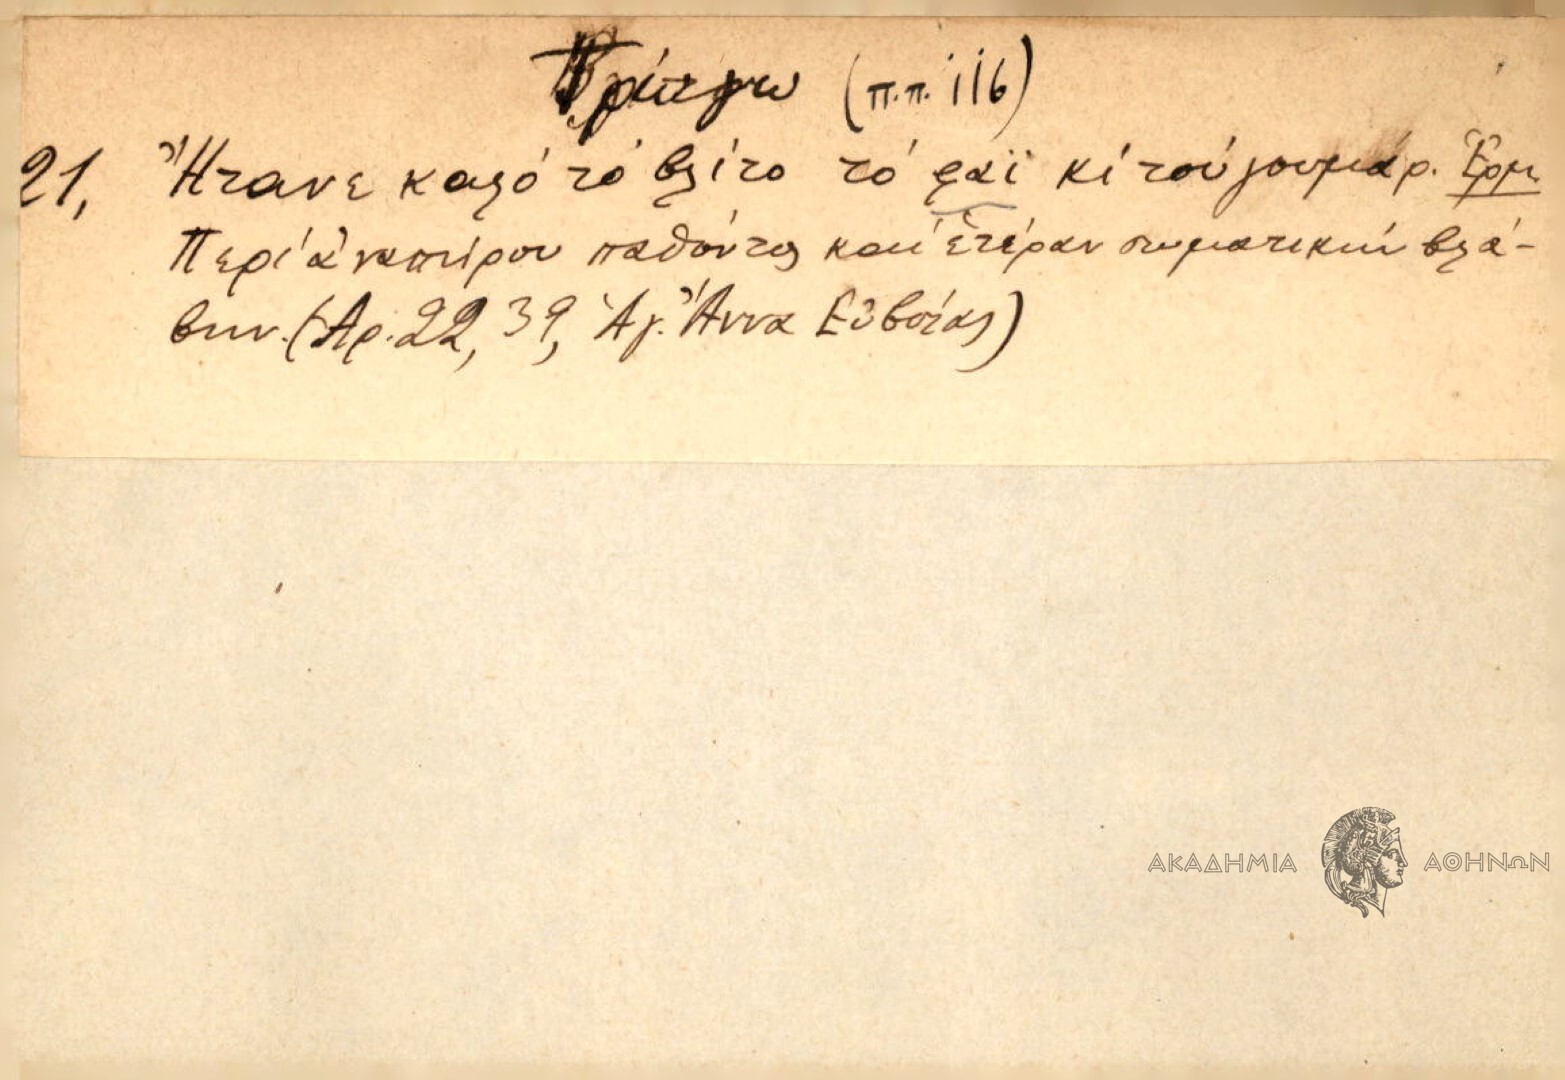 Τρώγω (π.π. 116)
21, Ἤτανε καλό τὸ βλίτο τὸ φαΐ κὶ τοὺ γουμάρ. Ἑρμ.
Περὶ ἀναπήρου παθόντος καὶ ἑτέραν σωματικὴν βλά-
βην. (Ἀρ. 22, 39, Ἁγ. Ἄννα Εὐβοίας)
ΑΚΑΔΗΜΙΑ ΑΘΗΝΩΝ